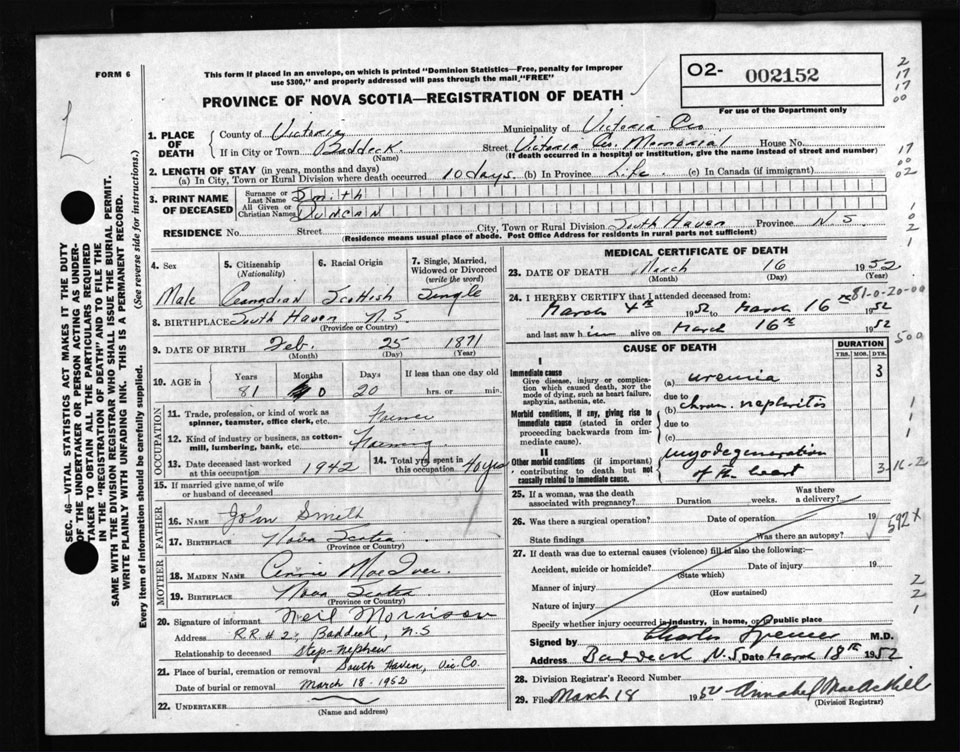 FORM 6
This form if placed in an envelope, on which is printed "Dominion Statistics—Free, penalty for improper
use $300," and properly addressed will pass through the mail "FREE"
PROVINCE OF NOVA SCOTIA—REGISTRATION OF DEATH
O2- 002152
For use of the Department only
2
17
17
00
1. PLACE OF DEATH
County of Victoria Municipality of Victoria Co.
If in City or Town Baddeck Street Victoria Co. Memorial House No.
(Name) (If death occurred in a hospital or institution, give the name instead of street and number)
17
00
02
2. LENGTH OF STAY (in years, months and days)
(a) In City, Town or Rural Division where death occurred 10 days. (b) In Province Life. (c) In Canada (if immigrant)
3. PRINT NAME OF DECEASED
Surname or Last Name Smith
All Given or Christian Names Duncan
RESIDENCE No. Street City, Town or Rural Division South Haven Province N.S.
(Residence means usual place of abode. Post Office Address for residents in rural parts not sufficient)
1
0
2
1
4. Sex Male
5. Citizenship (Nationality) Canadian
6. Racial Origin Scottish
7. Single, Married, Widowed or Divorced (write the word) Single
8. BIRTHPLACE South Haven N.S.
(Province or Country)
9. DATE OF BIRTH Feb. 25 1871
(Month) (Day) (Year)
10. AGE in Years Months Days If less than one day old
81 0 20 hrs. or min.
OCCUPATION
11. Trade, profession, or kind of work as spinner, teamster, office clerk, etc. Farmer
12. Kind of industry or business, as cotton-mill, lumbering, bank, etc. Farming
13. Date deceased last worked at this occupation 1942
14. Total yrs spent in this occupation 40 yrs
15. If married give name of wife or husband of deceased
FATHER
16. NAME John Smith
17. BIRTHPLACE Nova Scotia
(Province or Country)
MOTHER
18. MAIDEN NAME Annie MacIver
19. BIRTHPLACE Nova Scotia
(Province or Country)
20. Signature of informant Neil Morrison
Address R.R # 2, Baddeck, N.S
Relationship to deceased Step-nephew
21. Place of burial, cremation or removal South Haven, Vic. Co.
Date of burial or removal March 18 - 1952
22. UNDERTAKER
(Name and address)
MEDICAL CERTIFICATE OF DEATH
23. DATE OF DEATH March 16 1952
(Month) (Day) (Year)
24. I HEREBY CERTIFY that I attended deceased from:
81-0-20-00
March 4th 1952 to March 16th 1952
and last saw him alive on March 16th 1952
CAUSE OF DEATH
DURATION
YRS. MOS. DYS.
500
I
Immediate cause
Give disease, injury or complication which caused death, NOT the mode of dying, such as heart failure, asphyxia, asthenia, etc.
(a) uremia 3
due to
Morbid conditions, if any, giving rise to immediate cause (stated in order proceeding backwards from immediate cause).
(b) chron. nephritis
due to
(c)
1
1
1
II
Other morbid conditions (if important) contributing to death but not causally related to immediate cause.
myodegeneration
of the heart
3-16-2
25. If a woman, was the death associated with pregnancy? Duration weeks. Was there a delivery?
26. Was there a surgical operation? Date of operation 19
State findings Was there an autopsy?
592 x
27. If death was due to external causes (violence) fill in also the following:—
Accident, suicide or homicide? Date of injury 19
(State which)
Manner of injury
(How sustained)
Nature of injury
Specify whether injury occurred in industry, in home, or public place
2
2
1
Signed by Charles Spencer M.D.
Address Baddeck N.S Date March 18th 1952
28. Division Registrar's Record Number
29. Filed March 18 1952 Annabel MacAskill
(Division Registrar)
SEC. 46—VITAL STATISTICS ACT MAKES IT THE DUTY
OF THE UNDERTAKER OR PERSON ACTING AS UNDER-
TAKER TO OBTAIN ALL THE PARTICULARS REQUIRED
IN THE "REGISTRATION OF DEATH" AND TO FILE THE
SAME WITH THE DIVISION REGISTRAR WHO SHALL ISSUE THE BURIAL PERMIT.
WRITE PLAINLY WITH UNFADING INK. THIS IS A PERMANENT RECORD.
Every item of information should be carefully supplied. (See reverse side for instructions.)